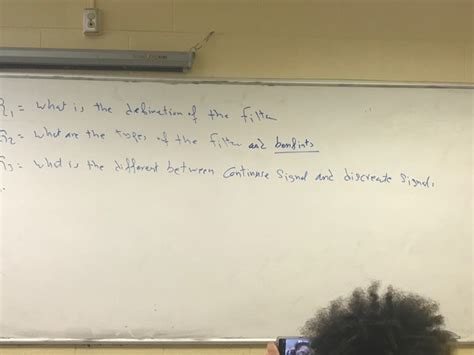 Q1 = what is the defination of the filter
Q2 = what are the types of the filter and
Q3 = what is the different between continuse signal and discreate signal.